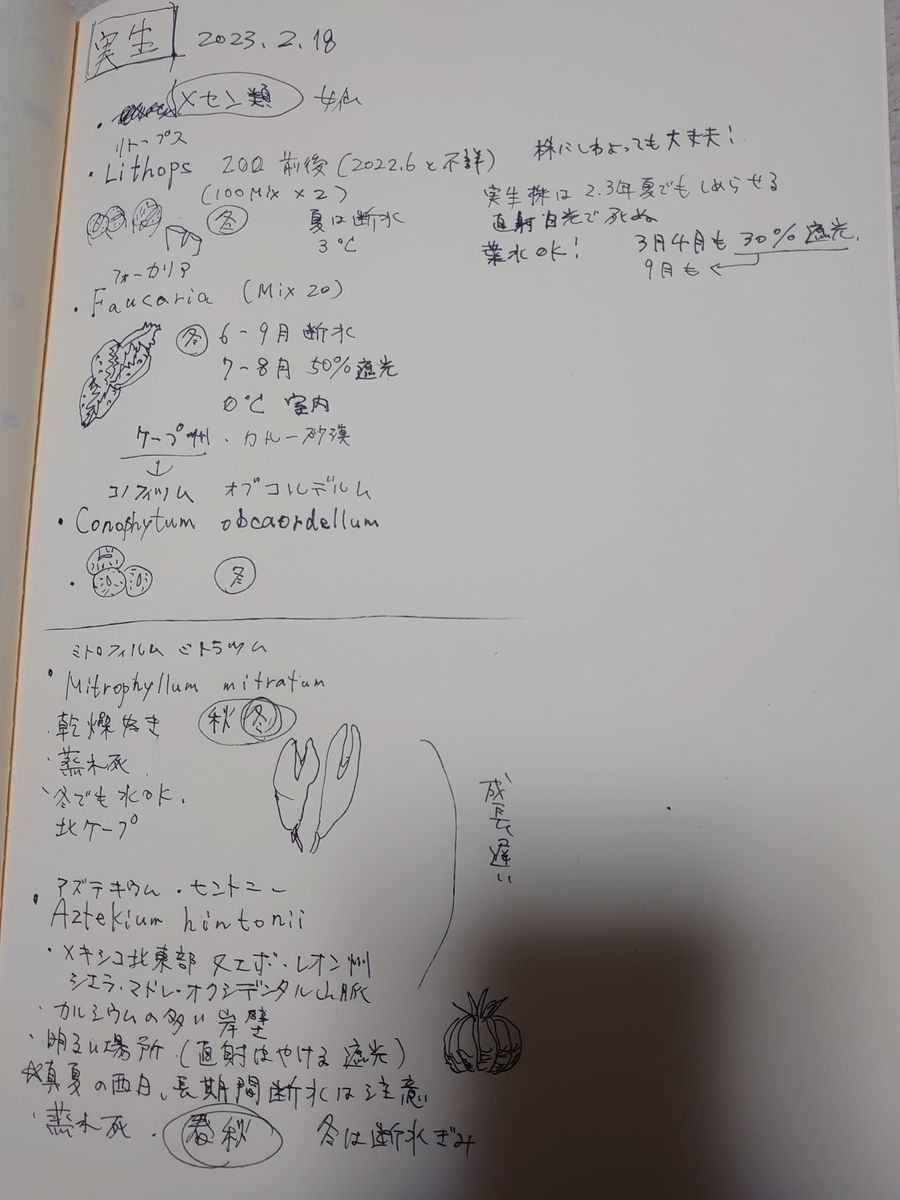 実生 2023.2.18
・ メセン類 女仙
リトープス
・Lithops 200前後(2022.6と不詳)
(100Mix×2)
冬 夏は断水
3℃
株にしわよっても大丈夫!
実生株は2.3年夏でもしめらせる
直射日光で死ぬ
葉水OK! 3月4月も30%遮光.
9月も←
フォーカリア
・Faucaria (Mix 20)
冬 6-9月断水
7-8月 50%遮光
0℃ 室内
ケープ州・カルー砂漠
↓
コノフィツム オブコルデルム
・Conophytum obcaordellum
・ 冬
ミトロフィルム ミトラツム
・Mitrophyllum mitratum
・乾燥好き 秋冬
・蒸れ死
・冬でも水OK.
北ケープ
成長遅い
アズテキウム・セントニー
・Aztekium hintonii
・メキシコ北東部 ヌエボ・レオン州
シエラ・マドレ・オクシデンタル山脈
・カルシウムの多い岸壁
・明るい場所(直射はやける 遮光)
☆真夏の西日、長期間断水は注意
・蒸れ死. 春秋 冬は断水ぎみ